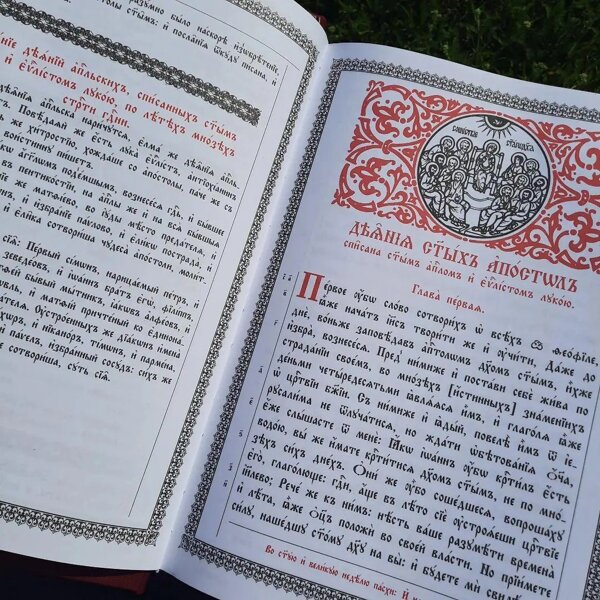 разумно было наскорѣ изѡбрѣтенїе,
столы ст҃ымъ: и҆ посла́нїѧ ѿкꙋ́дꙋ пи̑сана, и҆
дѣѧ́нїй а҆пⷭ҇льскихъ, спи́санныхъ ст҃ы́мъ
и҆ є҆ѵⷢ҇лі́стомъ лꙋко́ю, по лѣ́тѣхъ мно́зѣхъ
стрⷭ҇ти гдⷭ҇ни.
дѣѧ̑нїѧ а҆пⷭ҇льска нарича́ютсѧ, є҆лма́ же дѣѧ̑нїѧ а҆пⷭ҇ль
Повѣ́даѧй же є҆́сть лꙋка̀ є҆ѵⷢ҇лі́стъ, а҆нтїохі́анинъ
же хи́тростїю, хожда́ше со а҆пⷭ҇толы, па́че же съ
вои́стиннꙋ пи́шетъ.
а҆́гг҃лѡмъ под̾е́мшымъ, вознесе́сѧ гдⷭ҇ь, и҆ бы́вшее
въ пентико́стїи, на а҆пⷭ҇лы же и҆ на всѧ̑ бы́вшыѧ
же матѳі́ево, во і҆ꙋ́ды мѣ́сто преда́телѧ, и҆
и҆ и҆збра́нїе па́ѵлово, и҆ є҆ли̑ки пострада̀, и҆
и҆ є҆ли̑ка сотвори́ша чꙋдеса̀ а҆пⷭ҇толи, моли́т
сїѧ̑: Пе́рвый сі́мѡнъ, нарица́емый пе́тръ, и҆
зеведе́овъ, и҆ і҆ѡа́ннъ бра́тъ є҆гѡ̀, фїлі́ппъ,
бы́вый мы́тникъ, і҆а́кѡвъ а҆лфе́овъ, и҆
и҆ матѳі́й причте́ный ко є҆дино́на
Оу҆стро́енныхъ же дїа́кѡнъ и҆мена̀
и҆ нїкано́ръ, ті́мѡнъ, и҆ парме́на.
па́ѵелъ, и҆збра́нный сосꙋ́дъ: си́хъ же
сотвори́ша, сꙋ́ть сїѧ̑.
Дѣѧ̑нїѧ ст҃ы́хъ а҆пⷭ҇толъ
спи̑сана ст҃ы́мъ а҆пⷭ҇ломъ и҆ є҆ѵⷢ҇лі́стомъ лꙋко́ю.
Глава̀ пе́рваѧ.
Пе́рвое ᲂу҆́бѡ сло́во сотвори́хъ ѡ҆ всѣ́хъ, ѽ ѳео́фїле,
ꙗ҆̀же нача́тъ і҆и҃съ твори́ти же и҆ ᲂу҆чи́ти, Да́же до
днѐ, во́ньже заповѣ́давъ а҆пⷭ҇толѡмъ дх҃омъ ст҃ы́мъ, и҆̀хже
и҆збра̀, вознесе́сѧ. Пред̾ ни́миже и҆ поста́ви себѐ жи́ва по
страда́нїи свое́мъ, во мно́зѣхъ [и҆́стинныхъ] зна́менїихъ
де́ньми четы́редесѧтьми ꙗ҆влѧ́ѧсѧ и҆̀мъ, и҆ глаго́лѧ ꙗ҆̀же
ѡ҆ црⷭ҇твїи бж҃їи. Съ ни́миже и҆ ꙗ҆ды́й, повелѣ̀ и҆̀мъ ѿ і҆е
рꙋсали́ма не ѿлꙋча́тисѧ, но жда́ти ѡ҆бѣтова́нїѧ ѻ҆́ч҃а,
є҆́же слы́шасте ѿ менє̀: Ꙗ҆́кѡ і҆ѡа́ннъ ᲂу҆́бѡ крⷭ҇ти́лъ є҆́сть
водо́ю, вы́ же и҆́мате крⷭ҇ти́тисѧ дх҃омъ ст҃ы́мъ, не по мно
зѣ́хъ си́хъ дне́хъ. Ѻ҆ни́ же ᲂу҆́бѡ соше́дшесѧ, вопроша́хꙋ
є҆го̀, глаго́люще: гдⷭ҇и, а҆́ще въ лѣ́то сїѐ ᲂу҆строѧ́еши црⷭ҇твїе
і҆и҃лево; Рече́ же къ ни̑мъ: нѣ́сть ва́ше разꙋмѣ́ти времена̀
и҆ лѣ̑та, ꙗ҆̀же ѻ҆ц҃ъ положѝ во свое́й вла́сти. Но прїи́мете
си́лꙋ, наше́дшꙋ ст҃о́мꙋ дх҃ꙋ на вы̀: и҆ бꙋ́дете мѝ свидѣ́
Во ст҃ꙋ́ю и҆ вели́кꙋю недѣ́лю па́схи: